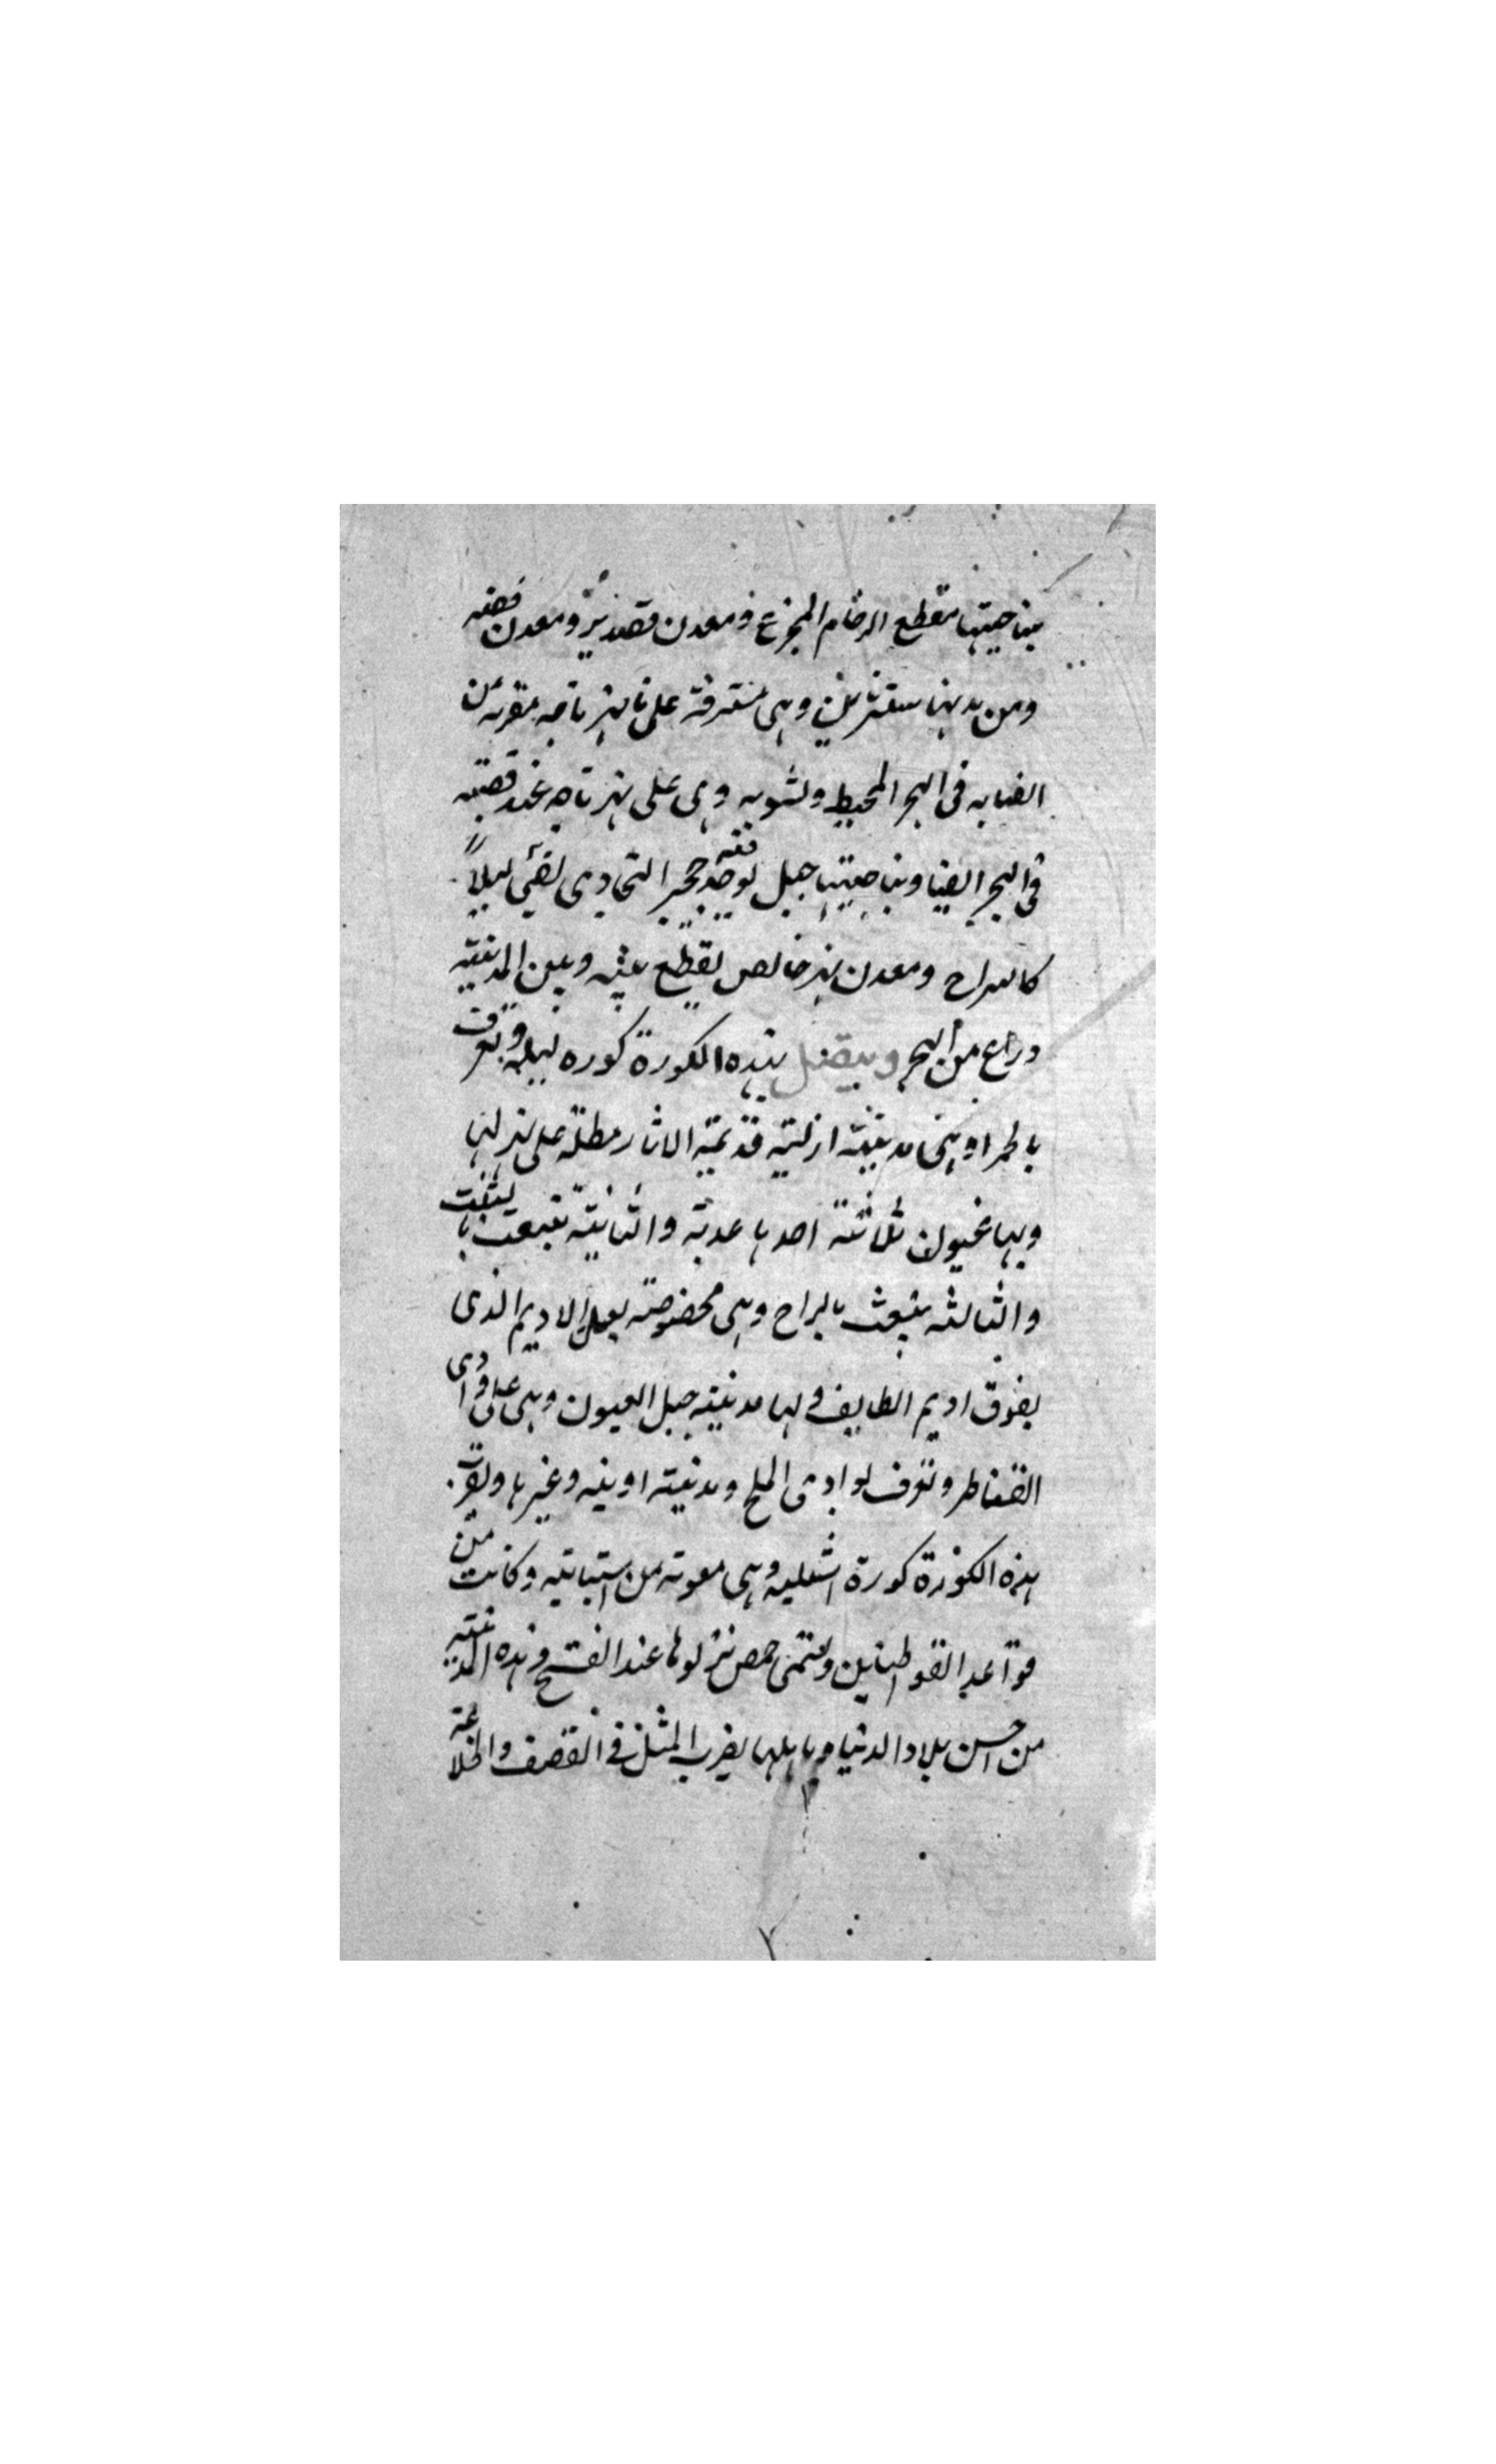 بناحيتها مقطع الرخام المجزع ومعدن قصدير ومعدن فضه
ومن مدينها سنترين وهى مشرفة على نهر تاجه بقربه من
انصبابه فى البحر المحيط ولشونه وهى على نهر تاجه عند قصبته
فى البحر ايضا وبناحيتها جبل يوجد فيه حجر التجادى يضئ ليلاً
كالسراج ومعدن تبر خالص يقطع عنه وبين المدينة
وراع من البحر ويتصل بهذه الكورة كوره لبله وتعرف
بالحمرا وهى مدينة ازلية قديمة الاثار مطلة على نهر لها
وبها عيون ثلاثة احدها عذبة والثانية تنبعث بالشب
والثالثه تنبعث بالزاج وهى مخصوصة بعمل الاديم الذى
يفوق اديم الطايف ولها مدينة جبل العيون وهى على وادى
القناطر وتعرف بوادى الملح ومدينة اونبه وغيرها وبقرب
هذه الكورة كورة اشبيليه وهى معربة من اشبانيه وكانت من
قواعد القوطيين وتسمى حمص نزلوها عند الفتح وهذه المدينة
من احسن بلاد الدنيا وباهلها يضرب المثل فى القصف والخلاعة